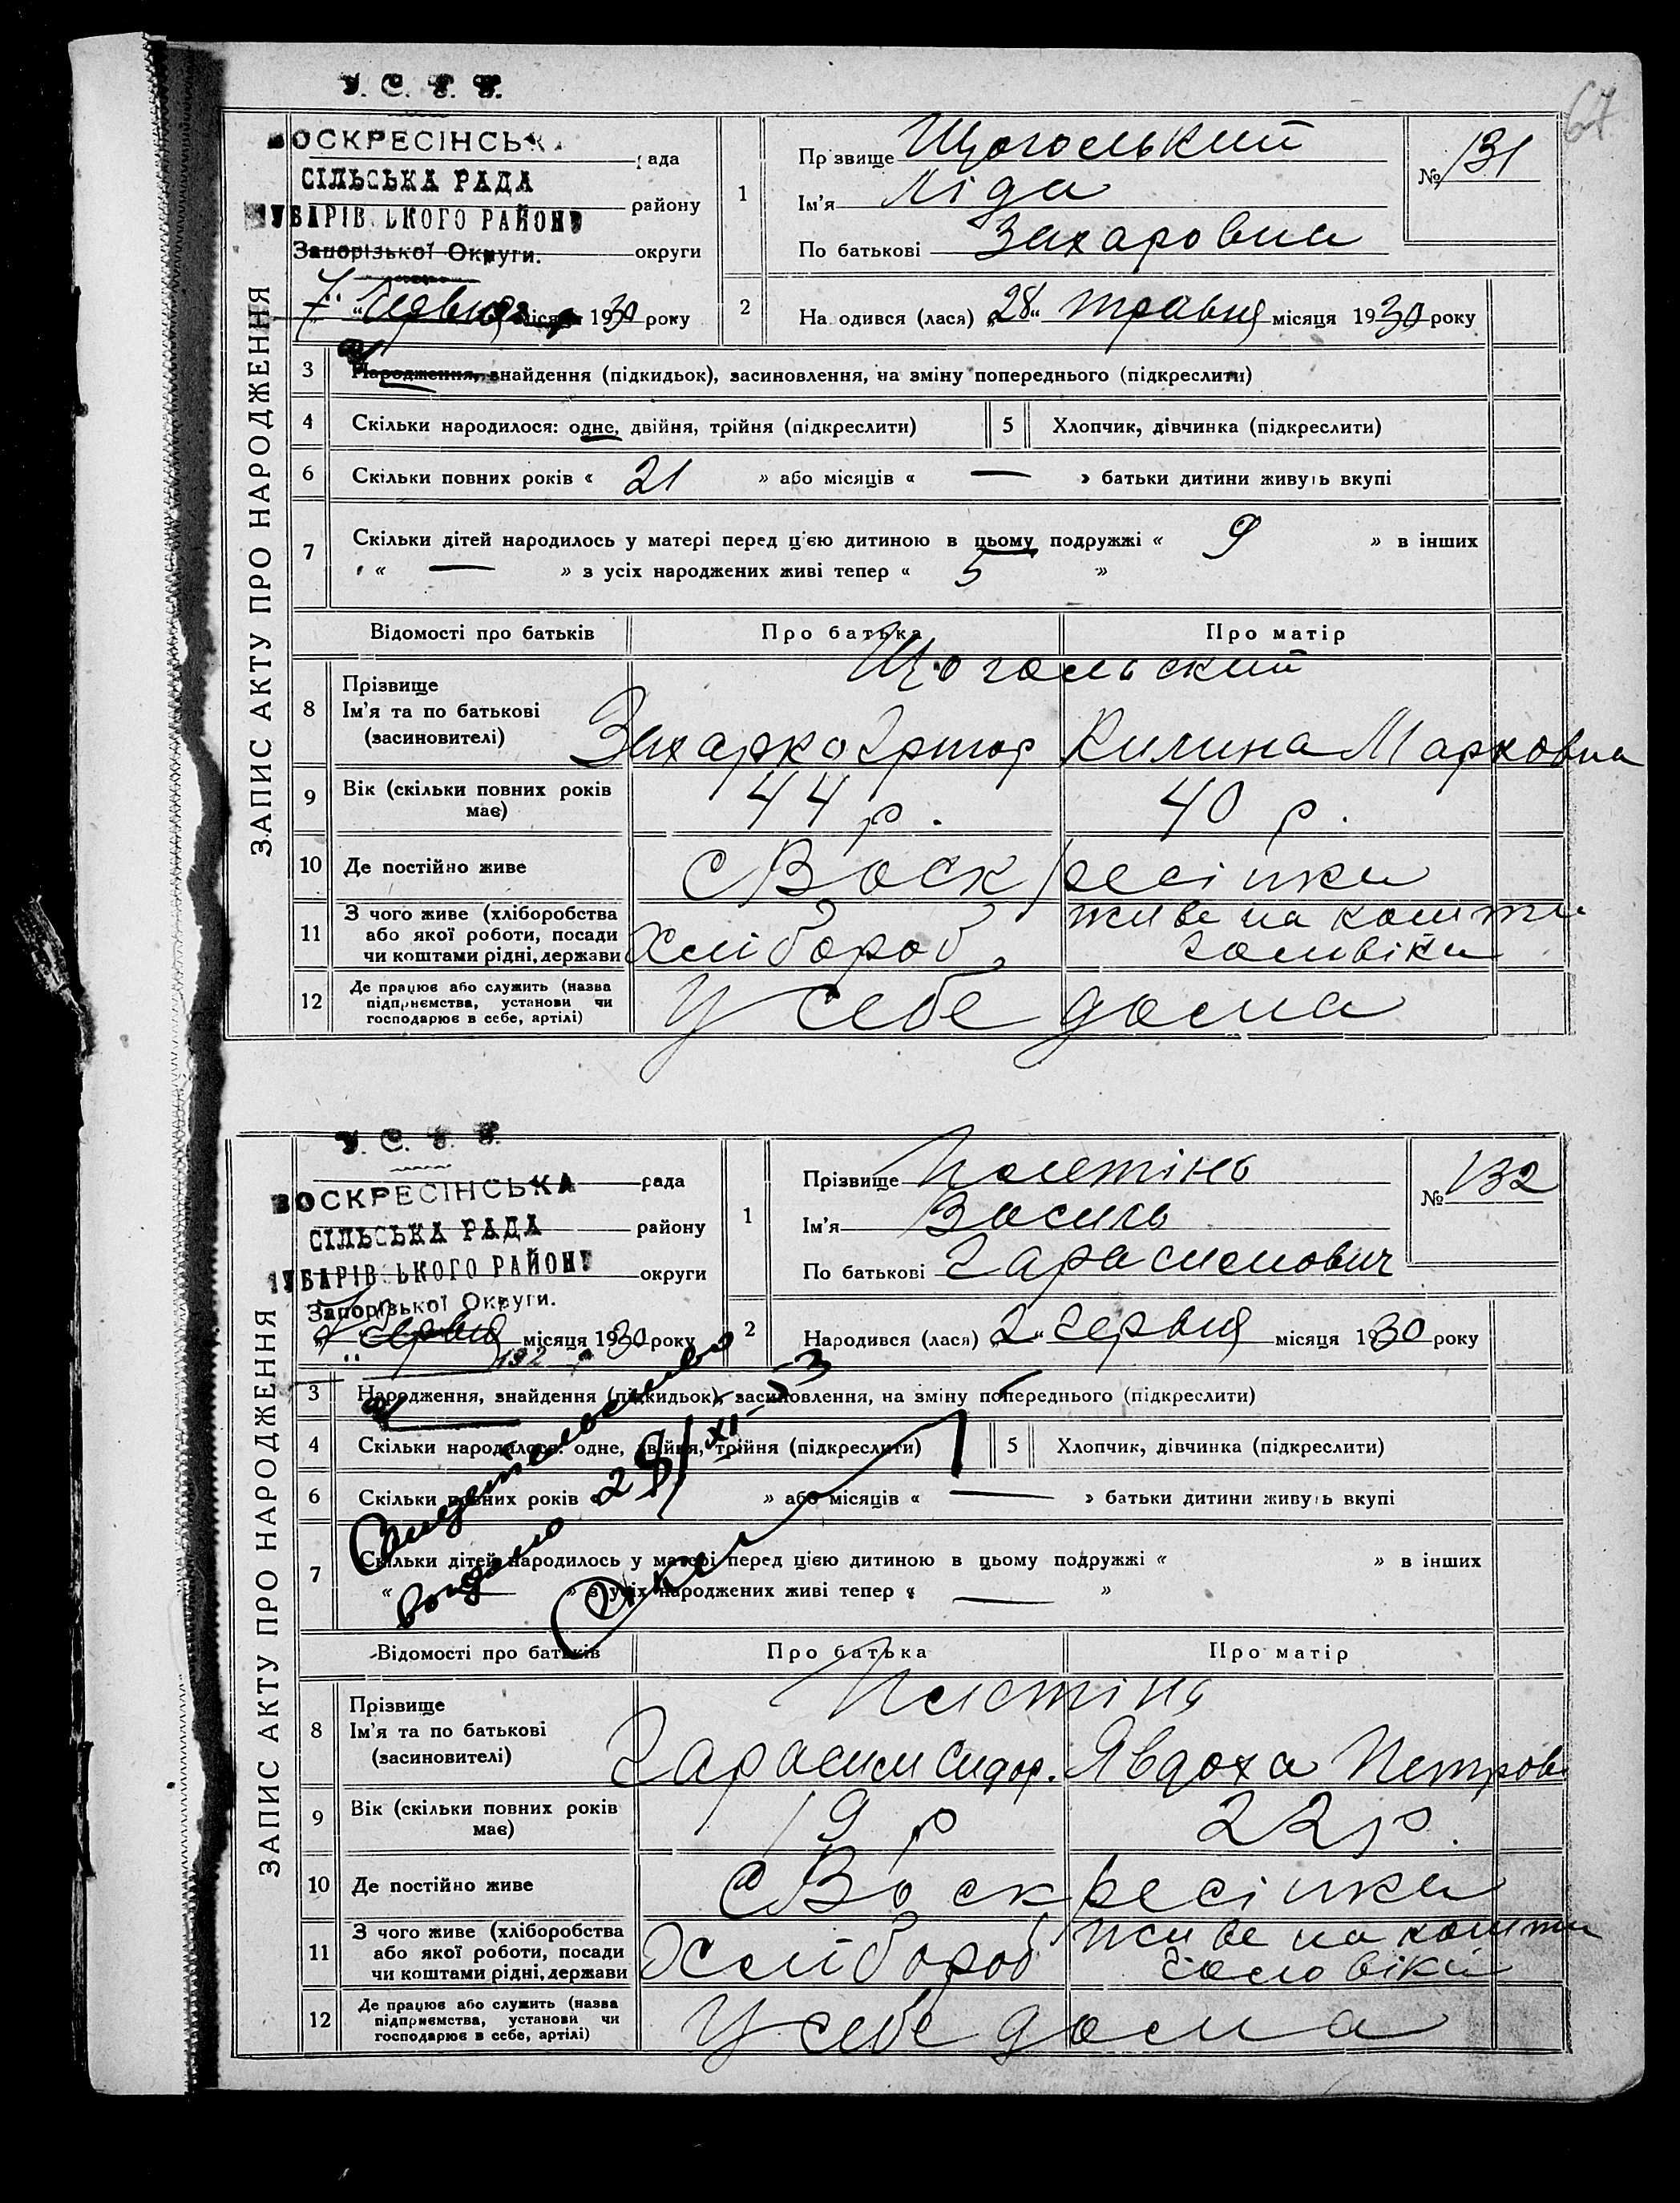 67
У. С. Р. Р.
ВОСКРЕСІНСЬКА рада
СІЛЬСЬКА РАДА району
ЧУБАРІВСЬКОГО РАЙОНУ
Запорізької Округи. округи
7 Червня місяця 1930 року
ЗАПИС АКТУ ПРО НАРОДЖЕННЯ
1 Прізвище Щогольский
Ім'я Ліда
По батькові Захаровна
№ 131
2 Народився (лася) „28" травня місяця 1930 року
3 Народження, знайдення (підкидьок), засиновлення, на зміну попереднього (підкреслити)
4 Скільки народилося: одне, двійня, трійня (підкреслити) 5 Хлопчик, дівчинка (підкреслити)
6 Скільки повних років « 21 » або місяців « — » батьки дитини живуть вкупі
7 Скільки дітей народилось у матері перед цією дитиною в цьому подружжі « 9 » в інших
« — » з усіх народжених живі тепер « 5 »
Відомості про батьків Про батька Про матір
8 Прізвище
Ім'я та по батькові
(засиновителі)
Щогольский
Захарко Килина Марковна
9 Вік (скільки повних років має) 44 р. 40 р.
10 Де постійно живе с Воскресінка
11 З чого живе (хліборобства
або якої роботи, посади
чи коштами рідні, держави
Хлібороб живе на кошти
чоловіка
12 Де працює або служить (назва
підприємства, установи чи
господарює в себе, артілі)
У себе дома
У. С. Р. Р.
ВОСКРЕСІНСЬКА рада
СІЛЬСЬКА РАДА району
ЧУБАРІВСЬКОГО РАЙОНУ округи
Запорізької Округи.
7 червня місяця 1930 року
192 р
ЗАПИС АКТУ ПРО НАРОДЖЕННЯ
1 Прізвище
Ім'я Василь
По батькові Гарасимович
№ 132
2 Народився (лася) „2" червня місяця 1930 року
3 Народження, знайдення (підкидьок), засиновлення, на зміну попереднього (підкреслити)
4 Скільки народилося: одне, двійня, трійня (підкреслити) 5 Хлопчик, дівчинка (підкреслити)
6 Скільки повних років « » або місяців « — » батьки дитини живуть вкупі
7 Скільки дітей народилось у матері перед цією дитиною в цьому подружжі « » в інших
« — » з усіх народжених живі тепер « — »
28/XI
Відомості про батьків Про батька Про матір
8 Прізвище
Ім'я та по батькові
(засиновителі)
Гарасим Сидор. Явдоха Петров
9 Вік (скільки повних років має) 19 р 22 р.
10 Де постійно живе с Воскресінка
11 З чого живе (хліборобства
або якої роботи, посади
чи коштами рідні, держави
Хлібороб живе на кошти
чоловіка
12 Де працює або служить (назва
підприємства, установи чи
господарює в себе, артілі)
У себе дома